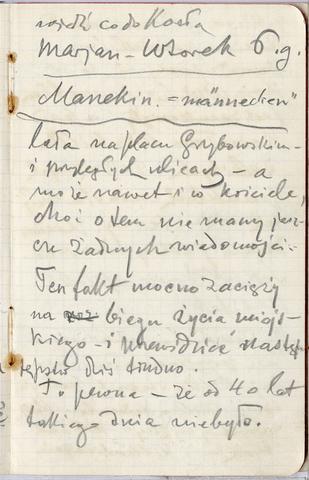 co do Kosta
Marjan – Wtorek 6. g.
Manekin. = "männechen"
lata na placu Grzybowskim –
i przyległych ulicach – a
może nawet i w kościele,
choć o tem nie mamy jesz-
cze żadnych wiadomości. –
Ten fakt mocno zaciąży
na biegu życia miejs-
kiego – i przewidzieć następ-
stw dziś trudno.
To pewna – że od 40 lat
takiego dnia nie było.